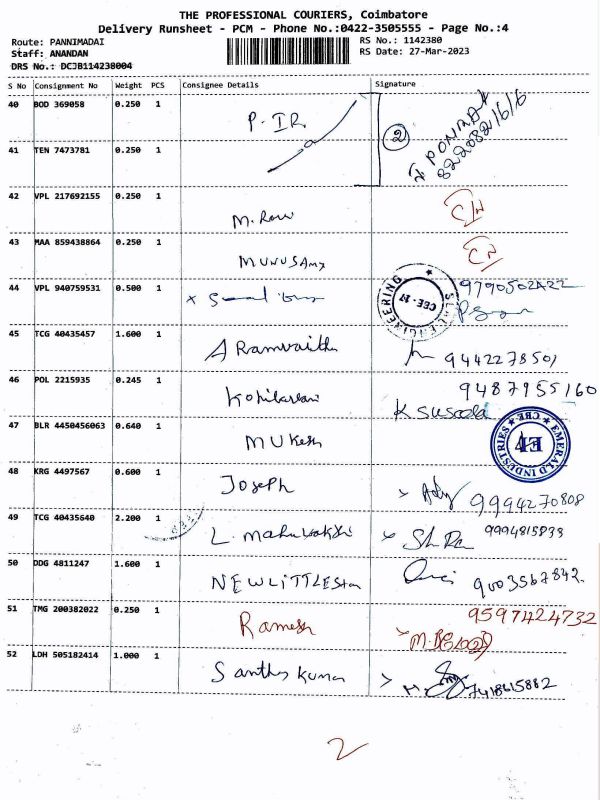 THE PROFESSIONAL COURIERS, Coimbatore
Delivery Runsheet - PCM - Phone No.:0422-3505555 - Page No.:4
Route: PANNIMADAI
RS No.: 1142380
Staff: ANANDAN
RS Date: 27-Mar-2023
DRS No.: DCJB114238004
S No Consignment No Weight PCS Consignee Details Signature
40 BOD 369058 0.250 1 P. IR
2
41 TEN 7473781 0.250 1
42 VPL 217692155 0.250 1 M. Ravi
43 MAA 859438864 0.250 1 MUNUSAMY
44 VPL 940759531 0.500 1
ENGINEERING
CBE - 17
45 TCG 40435457 1.600 1 A Ramvaithu 9442278501
46 POL 2215935 0.245 1 9487955160
K Suseela
47 BLR 4450456063 0.640 1 Mukesh
EMERALD INDUSTRIES ★ CBE ★
EI
48 KRG 4497567 0.600 1 Joseph 9994270808
49 TCG 40435640 2.200 1 L. 
50 DDG 4811247 1.600 1 NEW LITTLE Star 9003567842
51 TMG 200382022 0.250 1 Ramesh 9597424732
52 LDH 505182414 1.000 1 Santhos Kumar
2